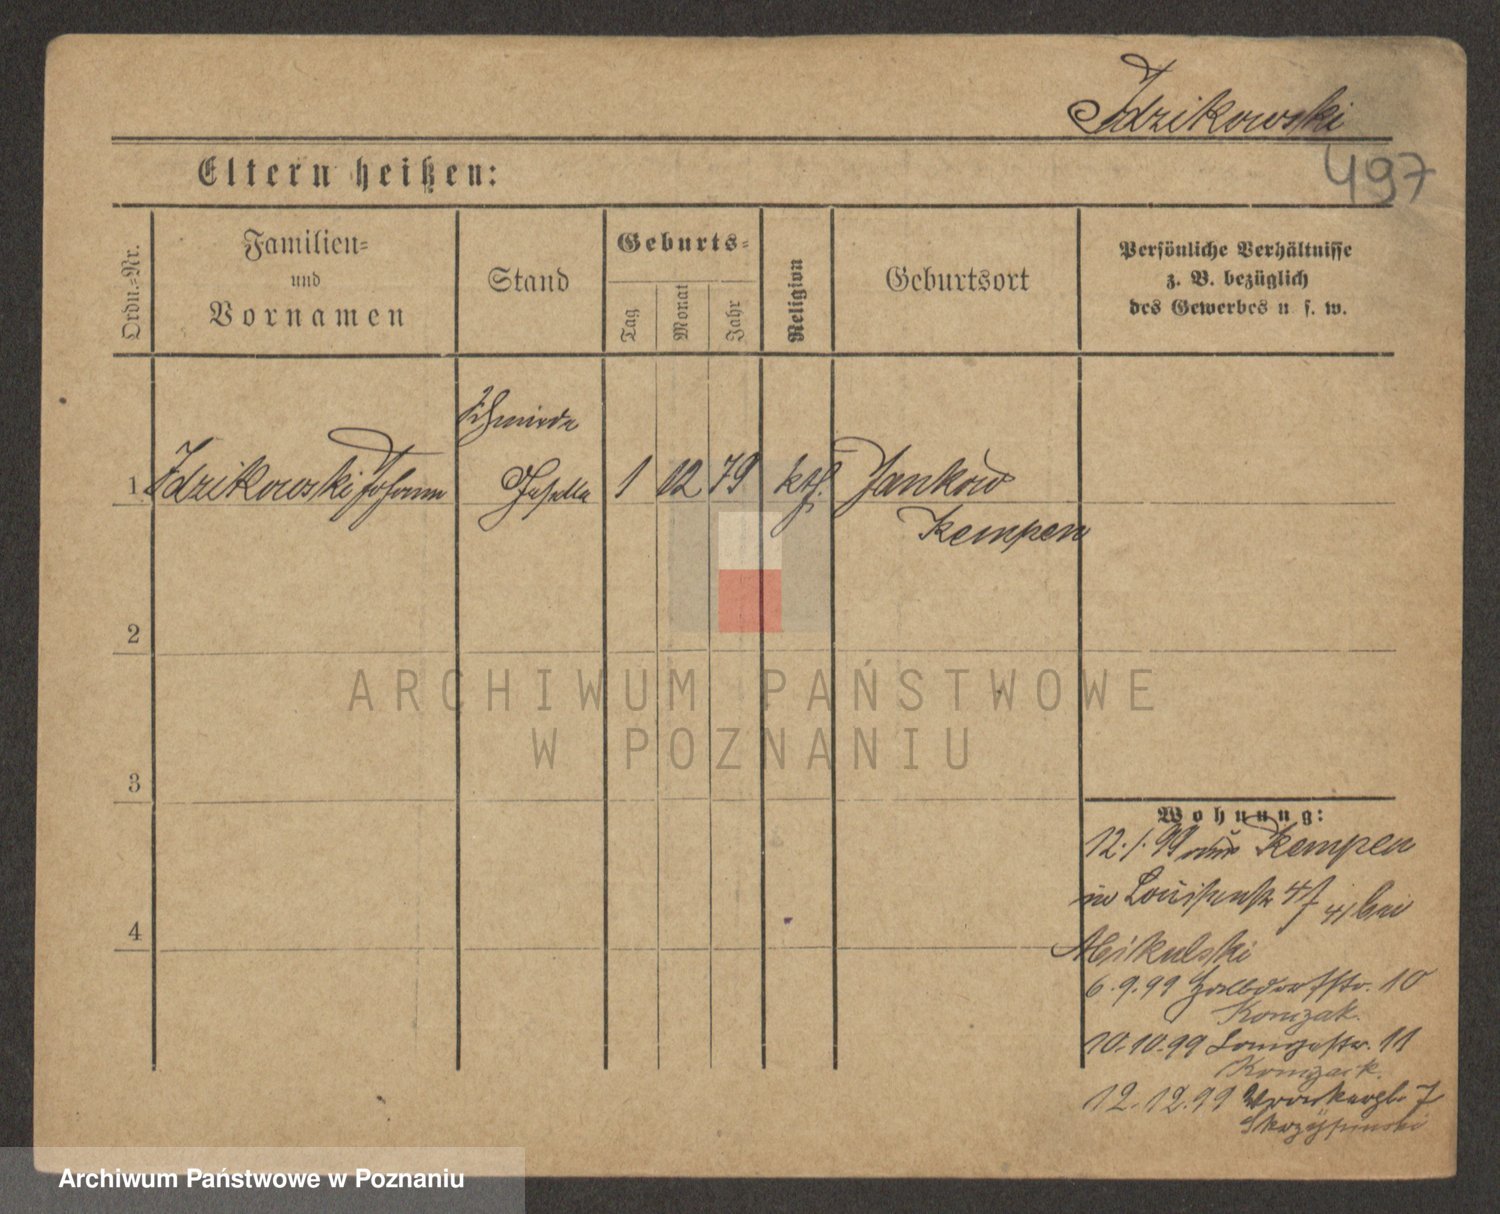 Idzikowski
497
Eltern heißen:
Ordn.=Nr.
Familien=
und
Vornamen
Stand
Geburts=
Tag
Monat
Jahr
Religion
Geburtsort
Persönliche Verhältnisse
z. B. bezüglich
des Gewerbes u. s. w.
Schmiede
1 Idzikowski Johann Geselle 1 12 79 kth. Jankow
Kempen
2
ARCHIWUM PAŃSTWOWE
W POZNANIU
3
Wohnung:
12. 1. 99 aus Kempen
in Louisenstr 4 bei
4
6. 9. 99 Halbdorfstr. 10
Konczak.
10. 10. 99 Langestr. 11
Konczak.
12. 12. 99 Wronkerpl. 7
Skrzypinski
Archiwum Państwowe w Poznaniu